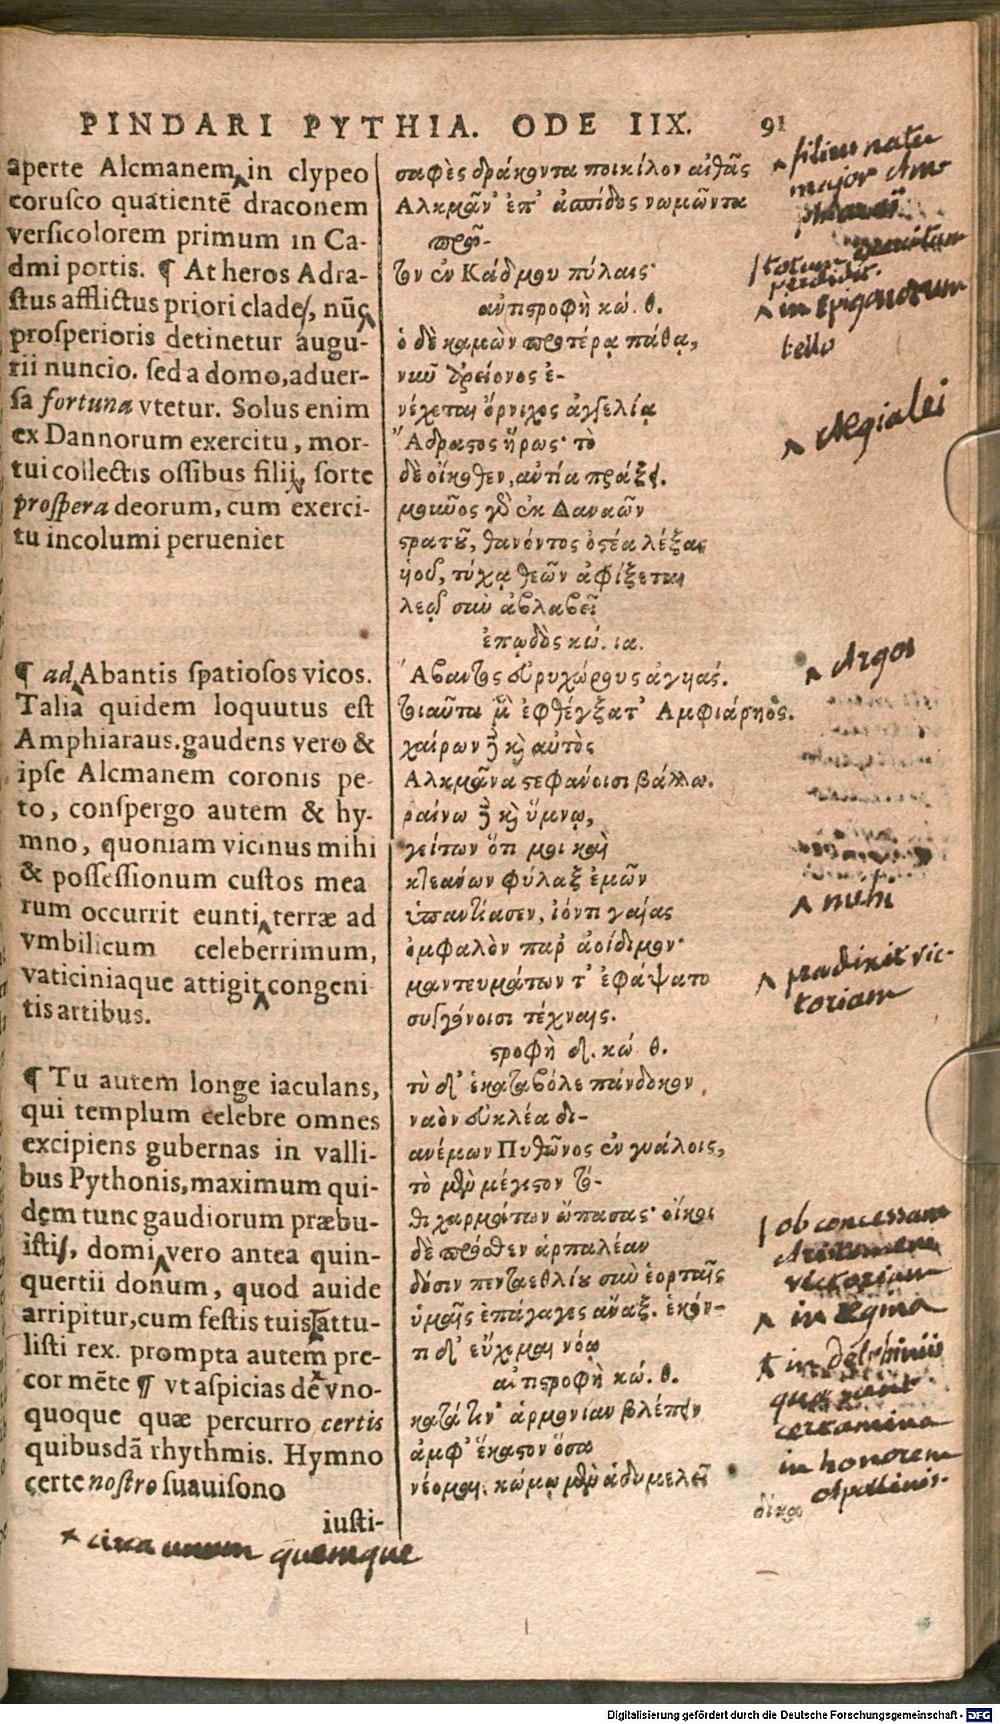 PINDARI PYTHIA. ODE IIX. 91
aperte Alcmanem in clypeo
corusco quatientē draconem
versicolorem primum in Ca-
dmi portis. ¶ At heros Adra-
stus afflictus priori clade, nūc
prosperioris detinetur augu-
rii nuncio. sed a domo, aduer-
sa fortuna vtetur. Solus enim
ex Dannorum exercitu, mor-
tui collectis ossibus filii, sorte
prospera deorum, cum exerci-
tu incolumi perueniet
¶ ad Abantis spatiosos vicos.
Talia quidem loquutus est
Amphiaraus. gaudens vero &
ipse Alcmanem coronis pe-
to, conspergo autem & hy-
mno, quoniam vicinus mihi
& possessionum custos mea
rum occurrit eunti terræ ad
vmbilicum celeberrimum,
vaticiniaque attigit congeni
tis artibus.
¶ Tu autem longe iaculans,
qui templum celebre omnes
excipiens gubernas in valli-
bus Pythonis, maximum qui-
dem tunc gaudiorum præbu-
isti, domi vero antea quin-
quertii donum, quod auide
arripitur, cum festis tuis attu-
listi rex. prompta autem pre-
cor mēte ¶ vt aspicias de vno-
quoque quæ percurro certis
quibusdā rhythmis. Hymno
certe nostro suauisono
iusti-
σαφὲς δράκοντα ποικίλον αἰθᾶς
Ἀλκμᾶν' ἐπ' ἀσπίδος νωμῶντα
πρῶ-
τον ἐν Κάδμου πύλαις·
ἀντιστροφὴ κώ. θ.
ὁ δὲ καμὼν προτέρᾳ πάθᾳ,
νῦν ἀρείονος ἐ-
νέχεται ὄρνιχος ἀγγελίᾳ
Ἄδραστος ἥρως· τὸ
δὲ οἴκοθεν, ἀντία πράξει.
μοῦνος γὸ ἐκ Δαναῶν
στρατοῦ, θανόντος ὀστέα λέξας
ὑιοῦ, τύχᾳ θεῶν ἀφίξεται
λεῷ σὺν ἀβλαβεῖ
ἐπῳδὸς κώ. ια.
Ἄβαντος εὐρυχόρους ἀγυιάς.
τοιαῦτα μὲν ἐφθέγξατ' Ἀμφιάρηος.
χαίρων δὲ καὶ αὐτὸς
Ἀλκμᾶνα στεφάνοισι βάλλω.
ῥαίνω δὲ καὶ ὕμνῳ,
γείτων ὅτι μοι καὶ
κτεάνων φύλαξ ἐμῶν
ὑπαντίασεν, ἰόντι γαίας
ὀμφαλὸν παρ' ἀοίδιμον·
μαντευμάτων τ' ἐφάψατο
συγγόνοισι τέχναις.
στροφὴ δ. κώ θ.
τὺ δ' ἑκαταβόλε πάνδοκον
ναὸν εὐκλέα δι-
ανέμων Πυθῶνος ἐν γυάλοις,
τὸ μὲν μέγιστον τό-
θι χαρμάτων ὤπασας· οἴκοι
δὲ πρόσθεν ἁρπαλέαν
δόσιν πενταεθλίου σὺν ἑορταῖς
ὑμαῖς ἐπάγαγες ἄναξ. ἑκόν-
τι δ' εὔχομαι νόῳ
ἀντιστροφὴ κώ. θ.
κατά τιν' ἁρμονίαν βλέπειν
ἀμφ' ἕκαστον ὅσα
νέομαι. κώμῳ μὲν ἁδυμελεῖ
δίκα
^ filium natu
major Am
phiarai
perdidit.
^ in Epigonorum
bello
^ Ægialei
^ Argos
^ mihi
^ prædixit vic-
toriam
ob concessam
Aristomeni
victoriam
^ in Ægina
+ in delphiniis
quæ sunt
certamina
in honorem
Apollinis.
+ circa unum quemque
Digitalisierung gefördert durch die Deutsche Forschungsgemeinschaft - DFG